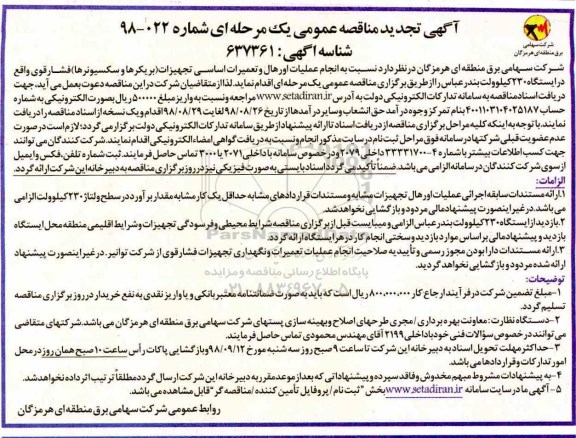 آگهی تجدید مناقصه عمومی یک مرحله ای شماره ۰۲۲-۹۸
شناسه آگهی: ۶۳۷۳۶۱
شرکت سهامی
برق منطقه ای هرمزگان
شرکت سهامی برق منطقه ای هرمزگان در نظر دارد نسبت به انجام عملیات اورهال و تعمیرات اساسی تجهیزات (بریکرها و سکسیونرها) فشار قوی واقع
در ایستگاه ۲۳۰ کیلوولت بندرعباس را از طریق برگزاری مناقصه عمومی یک مرحله ای اقدام نماید. لذا از متقاضیان شرکت در این مناقصه دعوت بعمل می آید، جهت
دریافت اسناد مناقصه به سامانه تدارکات الکترونیکی دولت به آدرس www.setadiran.ir مراجعه و نسبت به واریز مبلغ ۵۰۰۰۰۰ ریال بصورت الکترونیکی به شماره
حساب ۴۰۰۱۱۰۳۱۰۴۰۲۵۱۸۷ بنام تمرکز وجوه درآمد حق انشعاب و سایر درآمدها از تاریخ ۹۸/۰۸/۲۶ لغایت ۹۸/۰۸/۲۹ اقدام و یک نسخه از اسناد مناقصه را دریافت
نمایند. با توجه به اینکه کلیه مراحل برگزاری مناقصه از دریافت اسناد تا ارائه پیشنهاد از طریق سامانه تدارکات الکترونیکی دولت برگزار می گردد؛ لازم است در صورت
عدم عضویت قبلی شرکتها در سامانه فوق مراحل ثبت نام در سایت مذکور انجام و نسبت به دریافت گواهی امضاء الکترونیکی اقدام نمایند. شرکت کنندگان می توانند
جهت کسب اطلاعات بیشتر با شماره ۴-۳۳۳۳۱۷۰۰ داخلی ۲۰۷۹ و در خصوص سامانه با داخلی ۲۰۷۱ یا ۳۰۰۰ تماس حاصل فرمایند. ثبت شماره تلفن، فکس و ایمیل
از سوی شرکت کنندگان در سامانه الزامی می باشد. ضمنا تأکید می گردد اسناد بایستی به صورت فیزیکی نیز در روز برگزاری مناقصه به دبیرخانه این شرکت ارائه گردد.
الزامات:
۱. ارائه مستندات سابقه اجرائی عملیات اورهال تجهیزات مشابه و مستندات قراردادهای مشابه حداقل یک کار مشابه مقدار برآورد در سطح ولتاژ ۲۳۰ کیلوولت الزامی
می باشد. در غیر اینصورت پیشنهاد مالی مردود و بازگشایی نخواهد شد.
۲. بازدید از ایستگاه ۲۳۰ کیلوولت بندرعباس الزامی و میبایست قبل از برگزاری مناقصه شرایط محیطی و فرسودگی تجهیزات و شرایط اقلیمی منطقه محل ایستگاه
بازدید و پیشنهاد مالی براساس موارد بازدید و سختی انجام کار در هر ایستگاه ارائه گردد.
۳. ارائه مستندات دارا بودن مجوز رسمی و تأییدیه صلاحیت انجام عملیات تعمیرات و نگهداری تجهیزات فشار قوی از شرکت توانیر. در غیر اینصورت پیشنهاد
ارائه شده مردود و بازگشایی نخواهد گردید.
توضیحات:
۱- مبلغ تضمین شرکت در فرآیند ارجاع کار ۸۰۰،۰۰۰،۰۰۰ ریال است که باید به صورت ضمانتنامه معتبر بانکی و یا واریز نقدی به نفع خریدار در روز برگزاری مناقصه
تسلیم گردد.
۲- دستگاه نظارت: معاونت بهره برداری / مجری طرحهای اصلاح و بهینه سازی پستهای شرکت سهامی برق منطقه ای هرمزگان می باشد. شرکتهای متقاضی
می توانند در خصوص سؤالات فنی خود با داخلی ۲۱۹۹ آقای مهندس محمودی تماس حاصل فرمایند.
۳- حداکثر مهلت تحویل اسناد به دبیرخانه این شرکت تا ساعت ۹ صبح روز سه شنبه مورخ ۹۸/۰۹/۱۲ و بازگشایی پاکات رأس ساعت ۱۰ صبح همان روز در محل
امور تدارکات و قراردادها می باشد.
۴- به پیشنهادات مشروط مبهم مخدوش و فاقد سپرده و پیشنهاداتی که بعد از موعد مقرر به دبیرخانه این شرکت ارسال گردد مطلقا ترتیب اثر داده نخواهد شد.
۵- آگهی ما در سایت سامانه www.setadiran.ir بخش "ثبت نام / پروفایل تأمین کننده / مناقصه گر" قابل مشاهده می باشد.
روابط عمومی شرکت سهامی برق منطقه ای هرمزگان
پایگاه اطلاع رسانی مناقصه و مزایده
۰۲۱-۸۸۳۴۹۶۷۰-۵